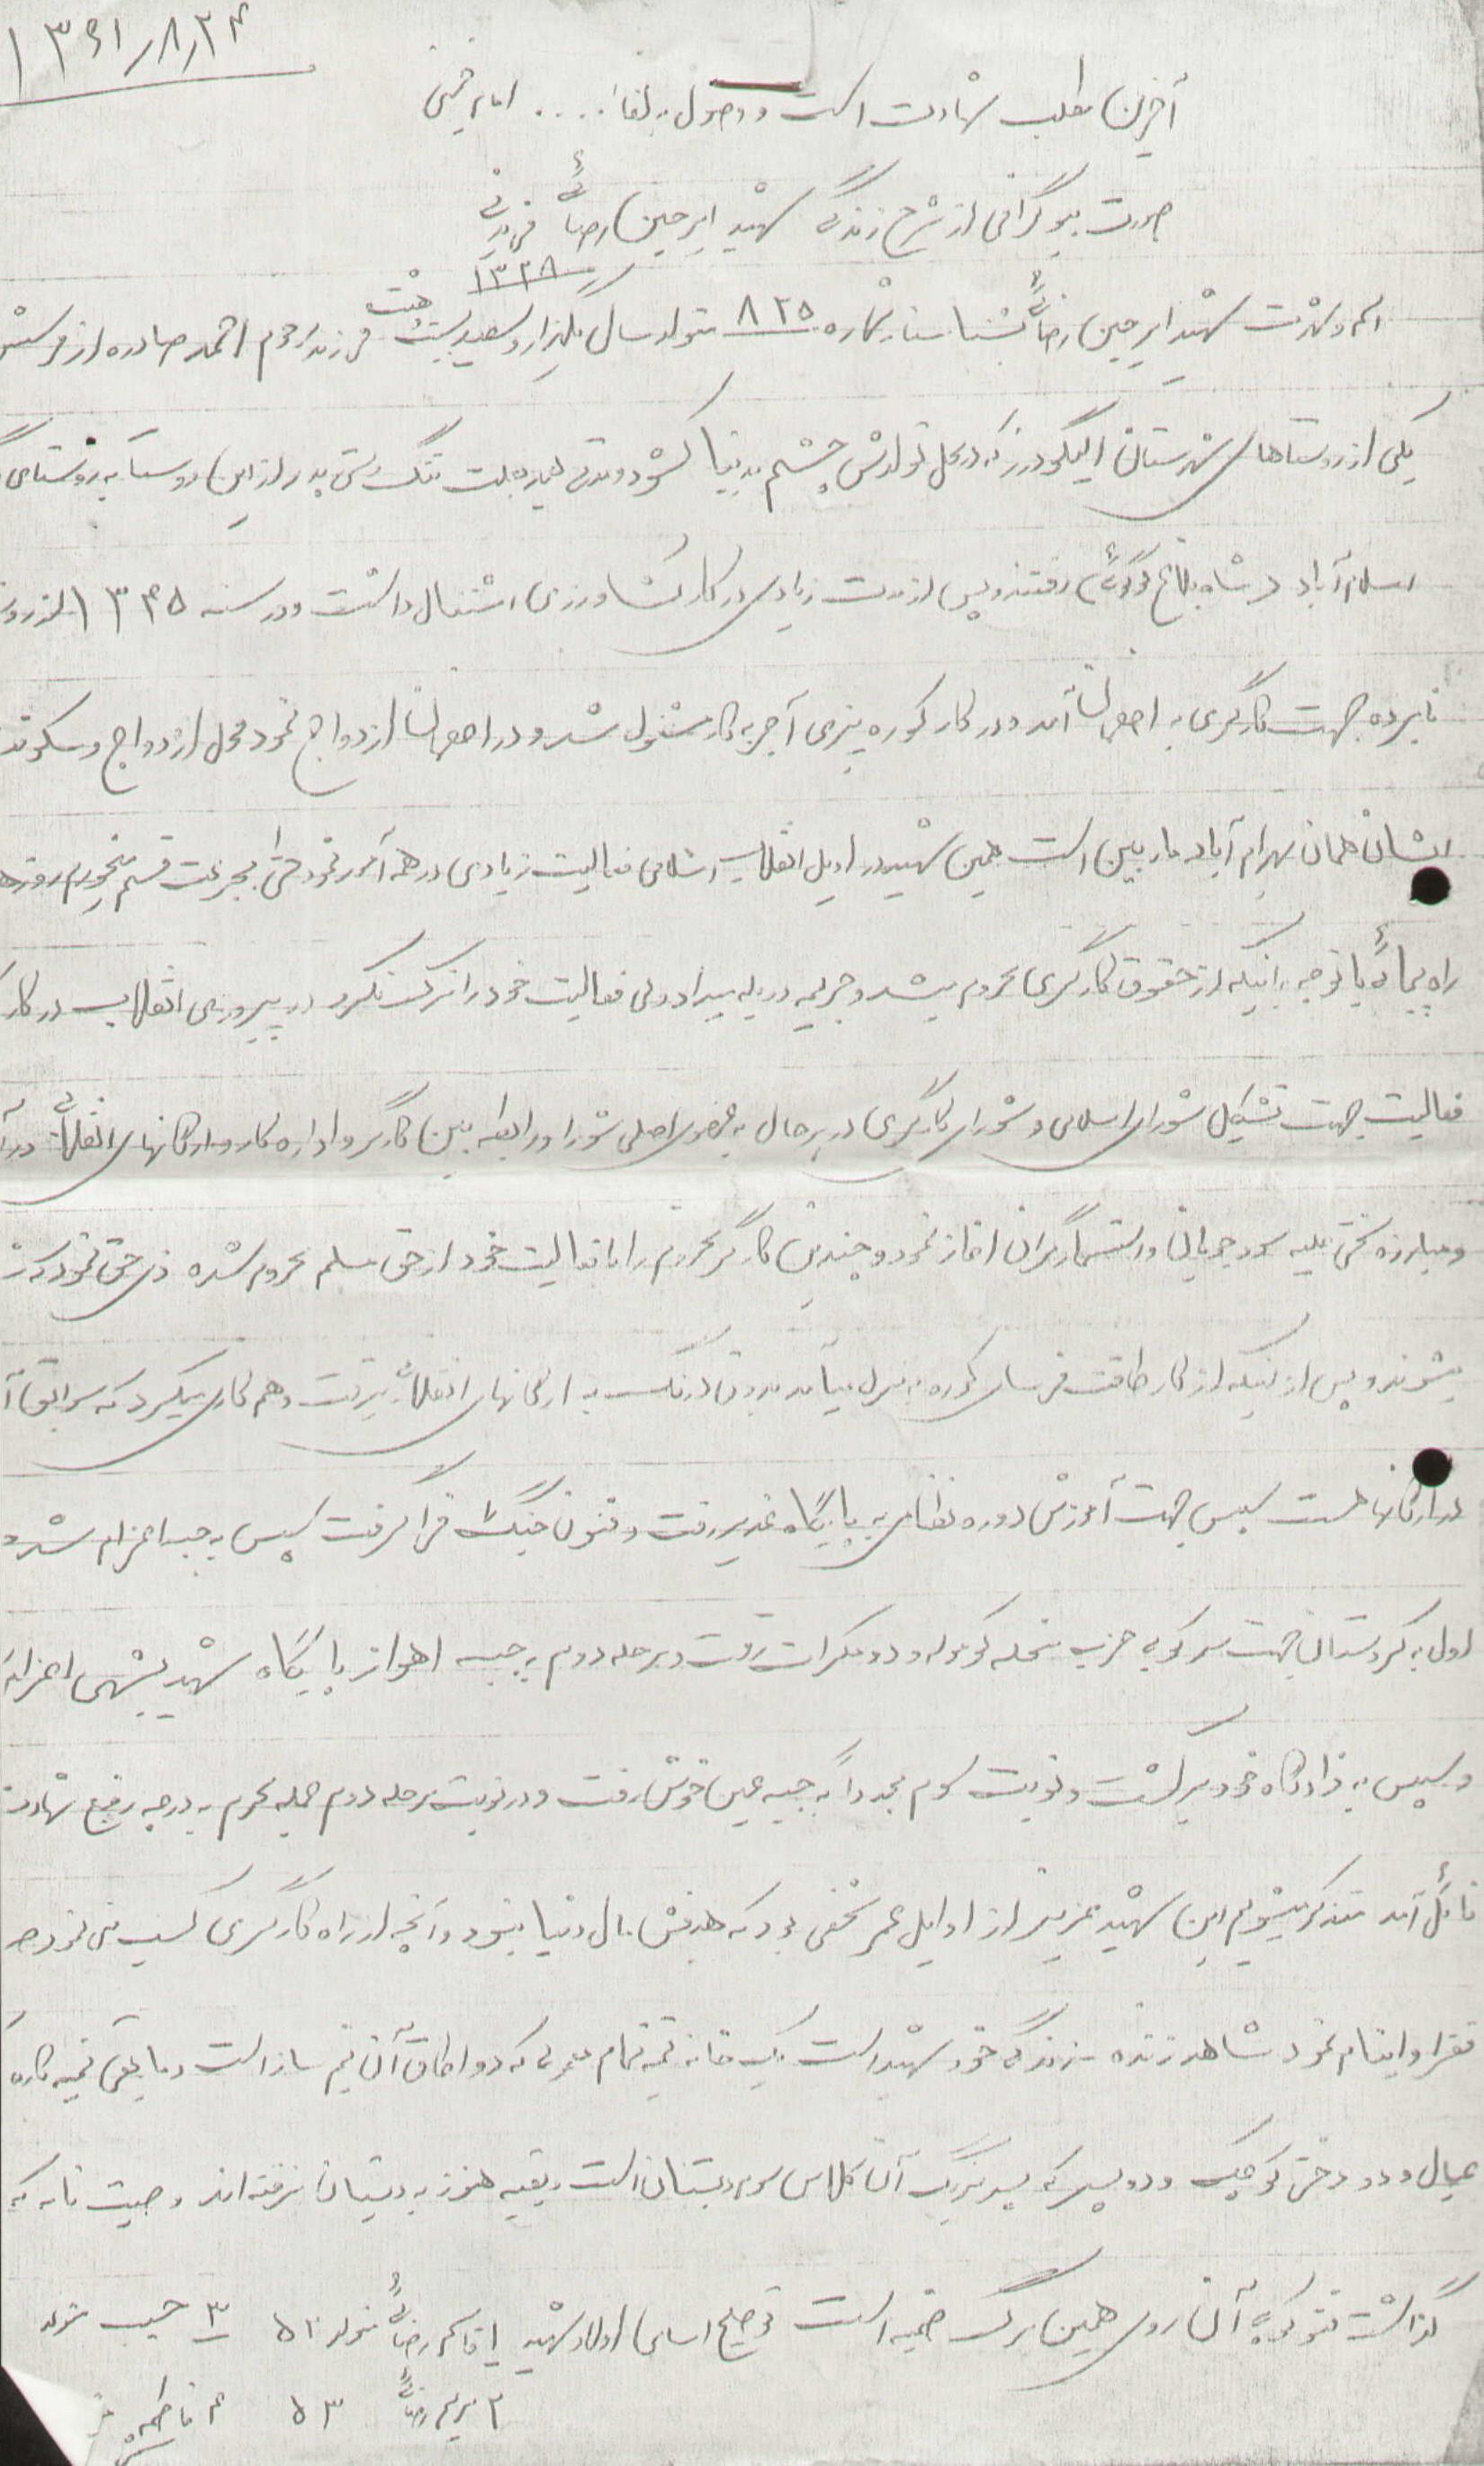 ۱۳۶۱/۸/۲۴
آخرین مطلب شهادت است و وصول به لقاء .... امام خمینی
صورت بیوگرافی از شرح زندگی شهید امیرحسین رضائی فریدنی
۱۳۲۸
اسم و شهرت شهید امیرحسین رضائی بشناسنامه شماره ۸۲۵ متولد سال یکهزار و سیصد بیست هشت فرزند مرحوم احمد صادره از
یکی از روستاهای شهرستان الیگودرز که در محل تولدش چشم بدنیا گشود و مدتی بعلت تنگدستی پدر از این روستا به روستای
اسلام آباد رفتند و پس از مدت زیادی در کار کشاورزی اشتغال داشت و در سنه ۱۳۴۵ از
نامبرده جهت کارگری به اصفهان آمد و در کار کوره پزی آجر به کار مشغول شد و در اصفهان ازدواج نمود محل ازدواج و سکونت
ایشان همان بهرام آباد ماربین است همین شهید در اوایل انقلاب اسلامی فعالیت زیادی در همه امور نمود حتی بجرئت قسم میخورم روز
راه پیمائی با توجه باینکه از حقوق کارگری محروم میشد و جریمه میداد ولی فعالیت خود را ترک نکرد در پیروزی انقلاب در کار
فعالیت جهت تشکیل شورای اسلامی و شورای کارگری در هر حال به عضو اصلی شورا و رابطه بین کارگر و اداره کار و ارگانهای انقلابی
و مبارزه سختی علیه سودجویان و استثمارگران آغاز نمود و چندین کارگر محروم را با فعالیت خود از حق مسلم محروم شده ذی حق نمود که
میشوند و پس از اینکه از کار طاقت فرسای کوره به منزل میآمد بدون درنگ به ارگانهای انقلابی میرفت و هم کاری میکرد که سوابق
در ارگانها هست سپس جهت آموزش دوره نظامی به پایگاه غدیر رفت و فنون جنگی فرا گرفت سپس به جبهه اعزام شد و
اول به کردستان جهت سرکوبی حزب منحله کومله و دومکرات رفت و مرحله دوم به جبهه اهواز پایگاه شهید بهشتی اعزام
و سپس به زادگاه خود برگشت و نوبت سوم مجددا به جبهه عین خوش رفت و در نوبت مرحله دوم حمله محرم به درجه رفیع شهادت
نائل آمد متذکر میشویم این شهید عزیز از اوایل عمر شخصی بود که هدفش مال دنیا نبود و آنچه از راه کارگری کسب می نمود
فقرا و ایتام نمود شاهد زنده زندگی خود شهید است یک خانه نیمه تمام معمولی که دو اطاق آن نیم ساز است و مابقی نیمه کاره
عیال و دو دختر کوچک و دو پسر که پسر بزرگ آن کلاس سوم دبستان است و بقیه هنوز به دبستان نرفته اند وصیت نامه که
گذاشت فتوکپی آن روی همین برگ ضمیمه است توضیح اسامی اولاد شهید ۱ قاسم رضائی متولد ۵۱ ۳ حبیب متولد
۲ مریم رضائی ۵۳ ۴ فاطمه